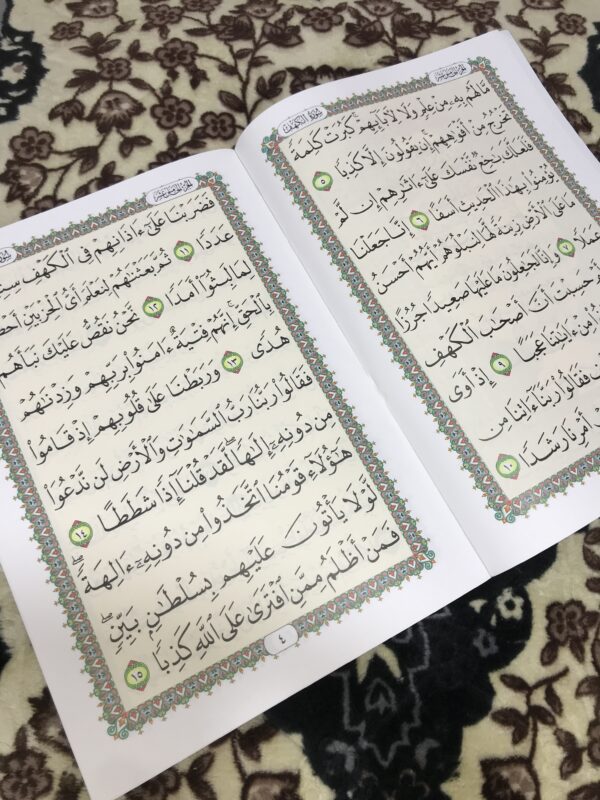 الجزء الخامس عشر
سورة الكهف
مَّا لَهُم بِهِۦ مِنْ عِلْمٍ وَلَا لِءَابَآئِهِمْ ۚ كَبُرَتْ كَلِمَةً
تَخْرُجُ مِنْ أَفْوَٰهِهِمْ ۚ إِن يَقُولُونَ إِلَّا كَذِبًا ٥
فَلَعَلَّكَ بَٰخِعٌ نَّفْسَكَ عَلَىٰٓ ءَاثَٰرِهِمْ إِن لَّمْ
يُؤْمِنُوا۟ بِهَٰذَا ٱلْحَدِيثِ أَسَفًا ٦ إِنَّا جَعَلْنَا
مَا عَلَى ٱلْأَرْضِ زِينَةً لَّهَا لِنَبْلُوَهُمْ أَيُّهُمْ أَحْسَنُ
عَمَلًا ٧ وَإِنَّا لَجَٰعِلُونَ مَا عَلَيْهَا صَعِيدًا جُرُزًا
حَسِبْتَ أَنَّ أَصْحَٰبَ ٱلْكَهْفِ
مِنْ ءَايَٰتِنَا عَجَبًا ٩ إِذْ أَوَى
فَقَالُوا۟ رَبَّنَآ ءَاتِنَا مِن
أَمْرِنَا رَشَدًا ١٠
الجزء الخامس عشر
فَضَرَبْنَا عَلَىٰٓ ءَاذَانِهِمْ فِى ٱلْكَهْفِ
عَدَدًا ١١ ثُمَّ بَعَثْنَٰهُمْ لِنَعْلَمَ أَىُّ ٱلْحِزْبَيْنِ
لِمَا لَبِثُوٓا۟ أَمَدًا ١٢ نَّحْنُ نَقُصُّ عَلَيْكَ نَبَأَهُم
بِٱلْحَقِّ ۚ إِنَّهُمْ فِتْيَةٌ ءَامَنُوا۟ بِرَبِّهِمْ وَزِدْنَٰهُمْ
هُدًى ١٣ وَرَبَطْنَا عَلَىٰ قُلُوبِهِمْ إِذْ قَامُوا۟
فَقَالُوا۟ رَبُّنَا رَبُّ ٱلسَّمَٰوَٰتِ وَٱلْأَرْضِ لَن نَّدْعُوَا۟
مِن دُونِهِۦٓ إِلَٰهًا ۖ لَّقَدْ قُلْنَآ إِذًا شَطَطًا ١٤
هَٰٓؤُلَآءِ قَوْمُنَا ٱتَّخَذُوا۟ مِن دُونِهِۦٓ ءَالِهَةً ۖ
لَّوْلَا يَأْتُونَ عَلَيْهِم بِسُلْطَٰنٍۭ بَيِّنٍ ۖ
فَمَنْ أَظْلَمُ مِمَّنِ ٱفْتَرَىٰ عَلَى ٱللَّهِ كَذِبًا ١٥
٤